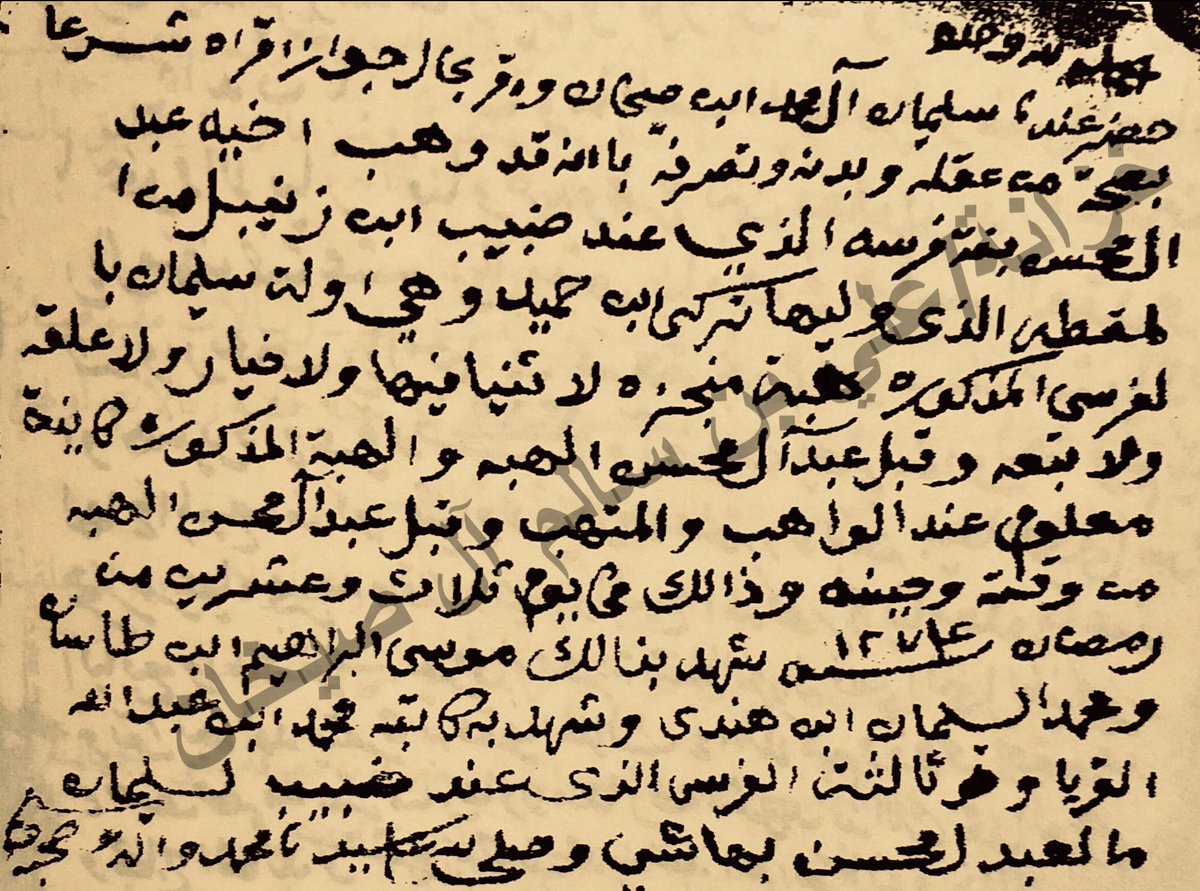 الحمد لله وحده
حضر عندي سليمان آل محمد ابن صيخان واقر بحال جواز اقراه شرعا
بصحة من عقله وبدنه وتصرفه باانه قد وهب اخيه عبد
المحسن بنت فرسه الذي عند ضبيب ابن زنيبيل من ا
لمقطه الذي وليها تركي ابن حميد وهي اولة سليمان با
لفرسي المذكوره هبة منجزه لا ثنيا فيها ولا خيار ولا علقه
ولا تبعه وقبل عبدآل محسن الهبه والهبة المذكوره كاينة
معلوم عند الواهب والمتهب وقبل عبدآل محسن الهبه
من وقته وحينه وذالك في يوم ثلاث وعشرين من
رمضان سنه شهد بذالك موسى البراهيم ابن طاسان
ومحمد السليمان ابن هندي وشهد به كاتبه محمد ابن عبدالله
القريا و ثالثة الفرسي الذي عند ضبيب لسليمان
ما لعبد لمحسن بها شي وصلى لله سيدنا محمد واله وصحبه
خزانة/علي بن سالم آل صيخان